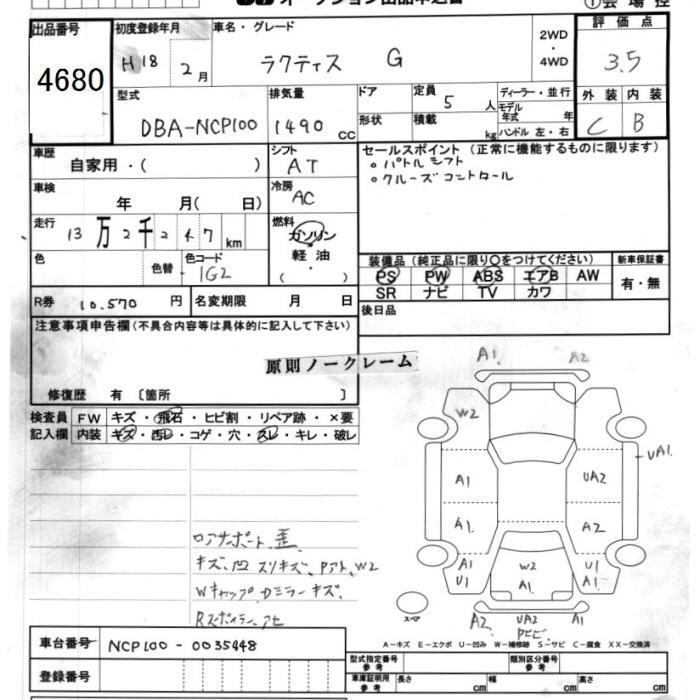 オークション出品申込書 ①会場控
出品番号 初度登録年月 車名・グレード 2WD ・ 4WD 評価点
4680 H18 2月 ラクティス G 3.5
型式 排気量 ドア 定員 5人 ディーラー・並行 外装 内装
DBA-NCP100 1490cc 形状 積載 kg モデル年式 年 ハンドル 左・右 C B
車歴 自家用・( ) シフト AT セールスポイント (正常に機能するものに限ります)
車検 年 月( 日) 冷房 AC ○パドルシフト
○クルーズコントロール
走行 13万2千247km 燃料 ガソリン・軽油・( )
色 色替 色コード 1G2 装備品(純正品に限り○をつけてください) 新車保証書
PS PW ABS エアB AW 有・無
SR ナビ TV カワ
R券 10.570円 名変期限 月 日 後日品
注意事項申告欄(不具合内容等は具体的に記入して下さい)
原則ノークレーム
修復歴 有 〔箇所 〕
検査員記入欄 FW キズ・飛石・ヒビ割・リペア跡・×要
内装 キズ・汚レ・コゲ・穴・スレ・キレ・破レ
A1 A2
W2
UA1
A1 UA2
A1 A2
A1 U1 W2 A1 U1 A1
スペア A2 UA2 A1
Pヒビ
ロアサポート歪
キズ、凹 スリキズ、Pアト、W2
Wキャップ、Dミラーキズ
Rスポイラーアセ
A-キズ E-エクボ U-凹み W-補修跡 S-サビ C-腐食 XX-交換済
車台番号 NCP100-0035448
型式指定番号 参考 類別区分番号 参考
登録番号 車庫証明用 参考 長さ cm 幅 cm 高さ cm